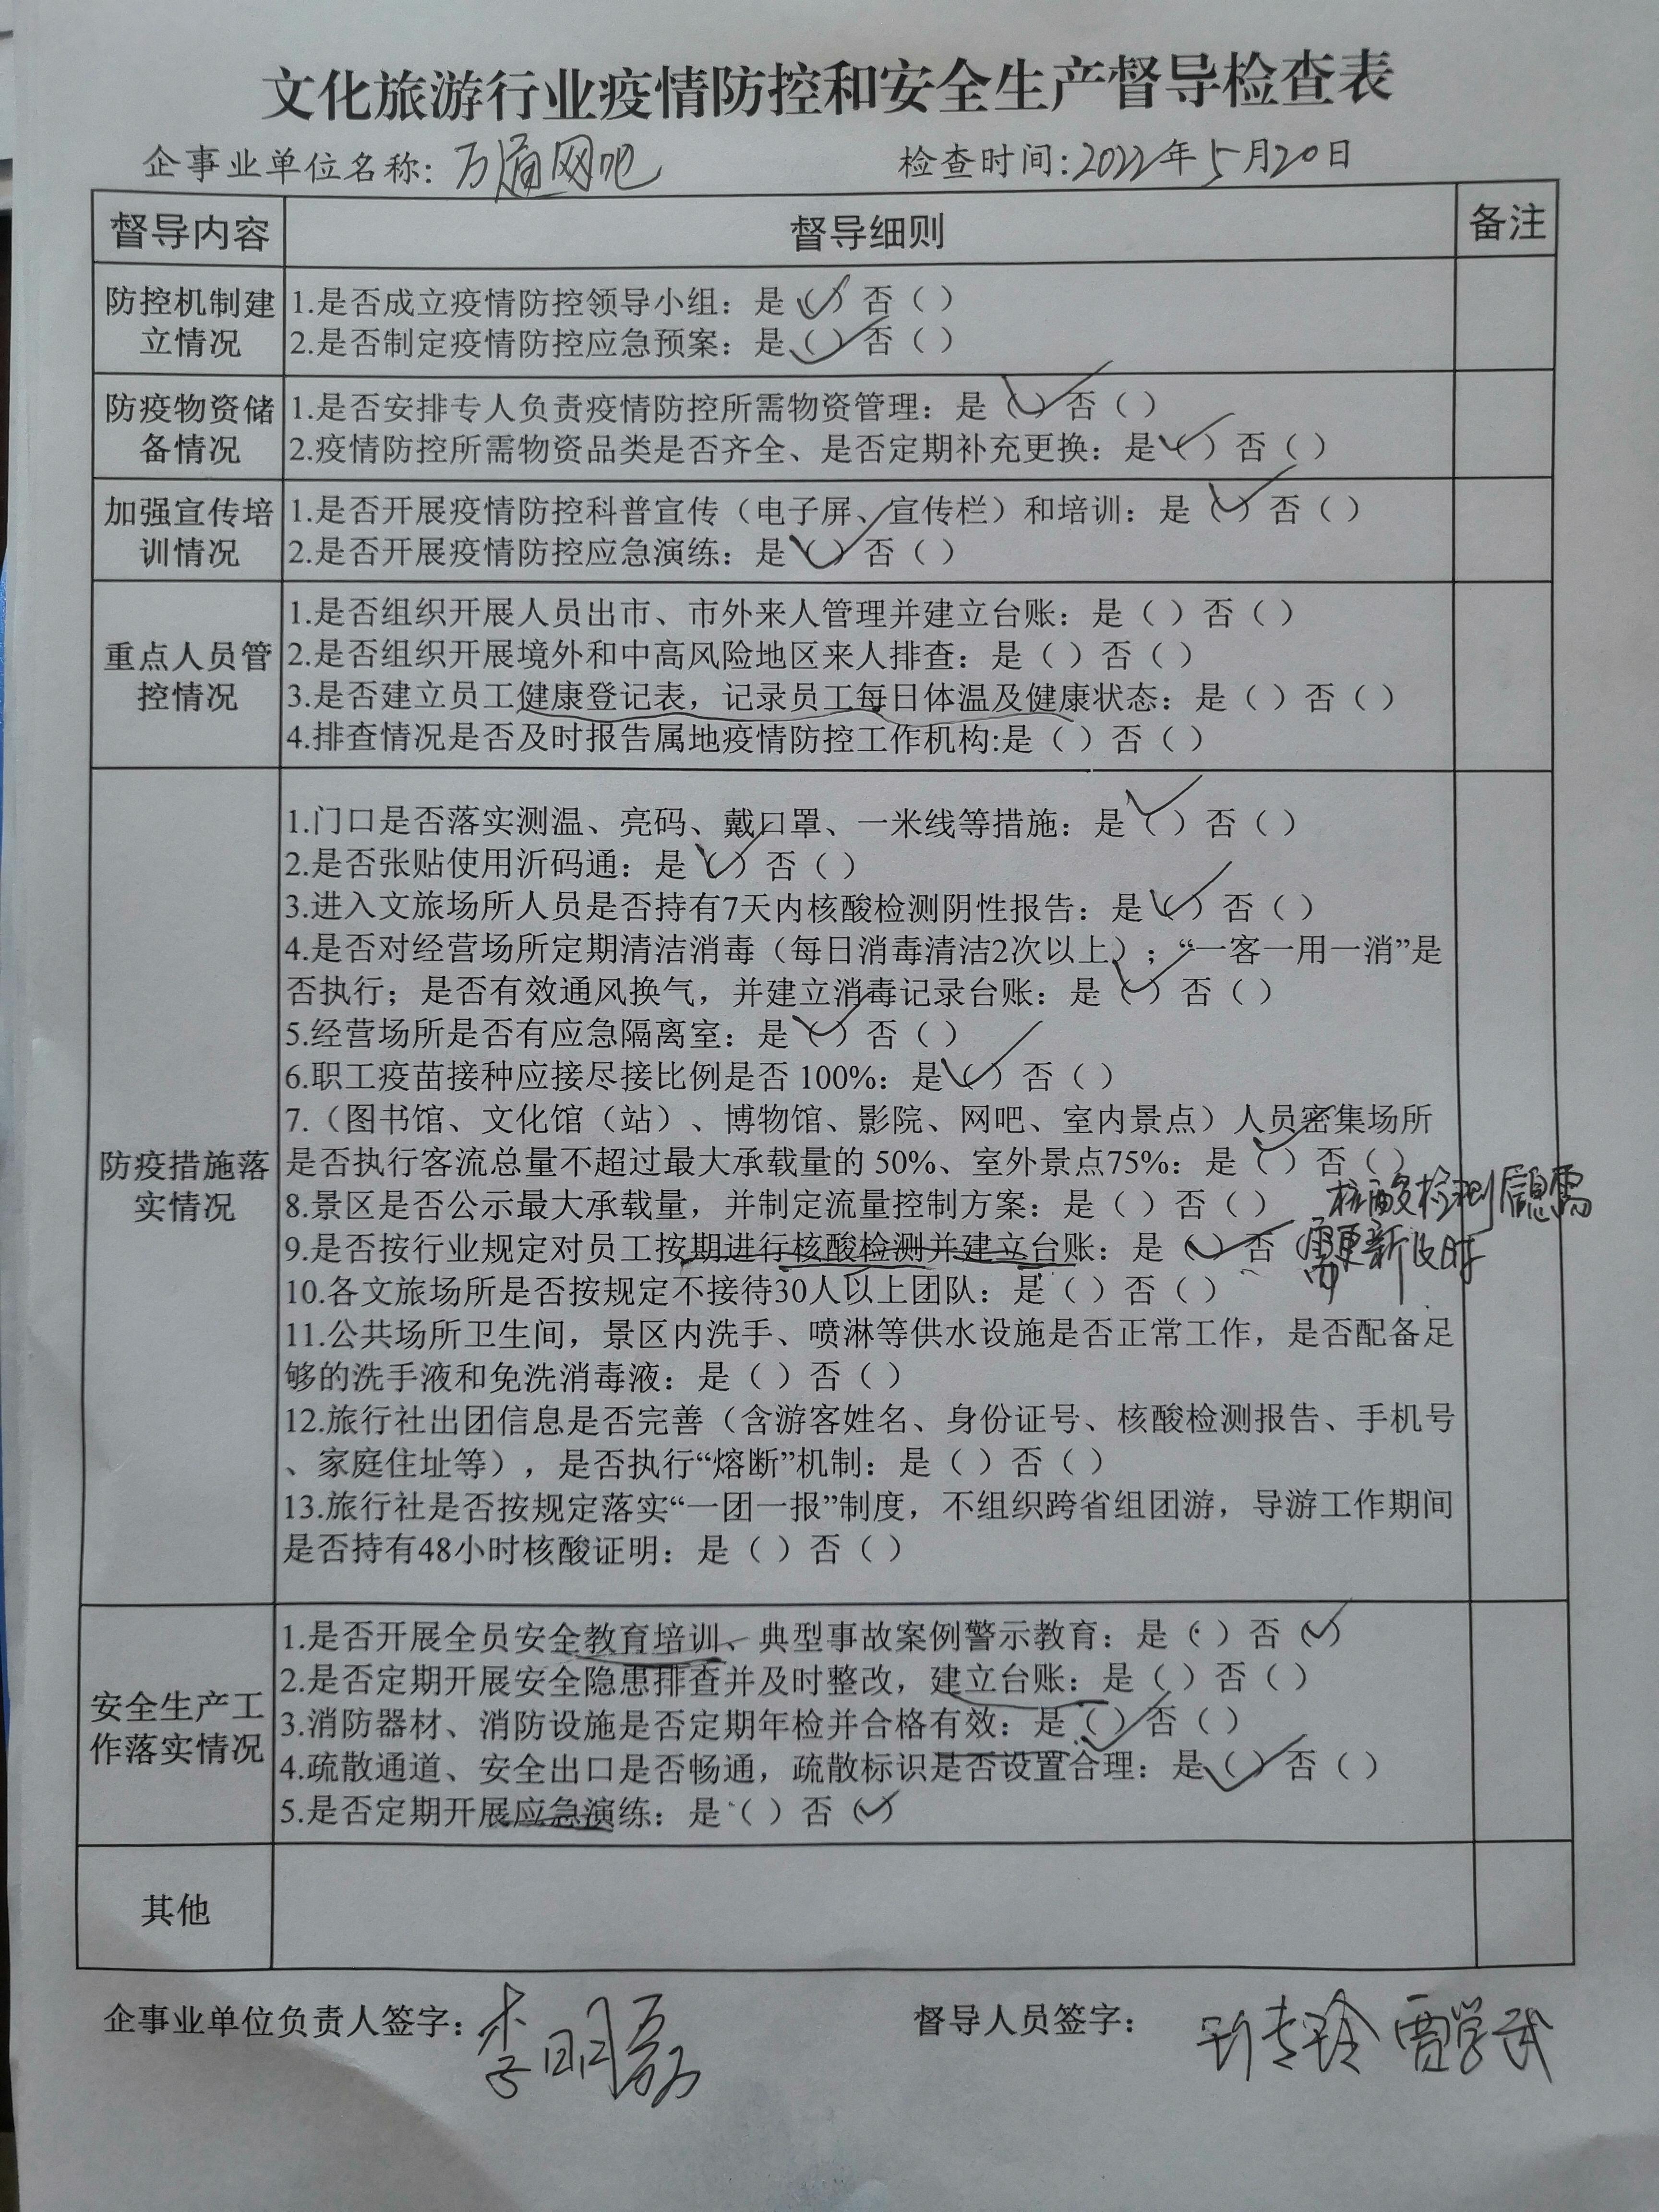 文化旅游行业疫情防控和安全生产督导检查表
企事业单位名称：万道网吧 检查时间：2022年5月20日
督导内容 督导细则 备注
防控机制建立情况
1.是否成立疫情防控领导小组：是（✓）否（ ）
2.是否制定疫情防控应急预案：是（✓）否（ ）
防疫物资储备情况
1.是否安排专人负责疫情防控所需物资管理：是（✓）否（ ）
2.疫情防控所需物资品类是否齐全、是否定期补充更换：是（✓）否（ ）
加强宣传培训情况
1.是否开展疫情防控科普宣传（电子屏、宣传栏）和培训：是（✓）否（ ）
2.是否开展疫情防控应急演练：是（✓）否（ ）
重点人员管控情况
1.是否组织开展人员出市、市外来人管理并建立台账：是（ ）否（ ）
2.是否组织开展境外和中高风险地区来人排查：是（ ）否（ ）
3.是否建立员工健康登记表，记录员工每日体温及健康状态：是（ ）否（ ）
4.排查情况是否及时报告属地疫情防控工作机构:是（ ）否（ ）
防疫措施落实情况
1.门口是否落实测温、亮码、戴口罩、一米线等措施：是（✓）否（ ）
2.是否张贴使用沂码通：是（✓）否（ ）
3.进入文旅场所人员是否持有7天内核酸检测阴性报告：是（✓）否（ ）
4.是否对经营场所定期清洁消毒（每日消毒清洁2次以上）；“一客一用一消”是
否执行；是否有效通风换气，并建立消毒记录台账：是（✓）否（ ）
5.经营场所是否有应急隔离室：是（✓）否（ ）
6.职工疫苗接种应接尽接比例是否 100%：是（✓）否（ ）
7.（图书馆、文化馆（站）、博物馆、影院、网吧、室内景点）人员密集场所
是否执行客流总量不超过最大承载量的 50%、室外景点75%：是（✓）否（ ）
8.景区是否公示最大承载量，并制定流量控制方案：是（ ）否（ ） 核酸检测信息需
9.是否按行业规定对员工按期进行核酸检测并建立台账：是（✓）否 需更新及时
10.各文旅场所是否按规定不接待30人以上团队：是（ ）否（ ）
11.公共场所卫生间，景区内洗手、喷淋等供水设施是否正常工作，是否配备足
够的洗手液和免洗消毒液：是（ ）否（ ）
12.旅行社出团信息是否完善（含游客姓名、身份证号、核酸检测报告、手机号
、家庭住址等），是否执行“熔断”机制：是（ ）否（ ）
13.旅行社是否按规定落实“一团一报”制度，不组织跨省组团游，导游工作期间
是否持有48小时核酸证明：是（ ）否（ ）
安全生产工作落实情况
1.是否开展全员安全教育培训、典型事故案例警示教育：是（ ）否（✓）
2.是否定期开展安全隐患排查并及时整改，建立台账：是（ ）否（ ）
3.消防器材、消防设施是否定期年检并合格有效：是（✓）否（ ）
4.疏散通道、安全出口是否畅通，疏散标识是否设置合理：是（✓）否（ ）
5.是否定期开展应急演练：是（ ）否（✓）
其他
企事业单位负责人签字：李明磊 督导人员签字： 贾学武